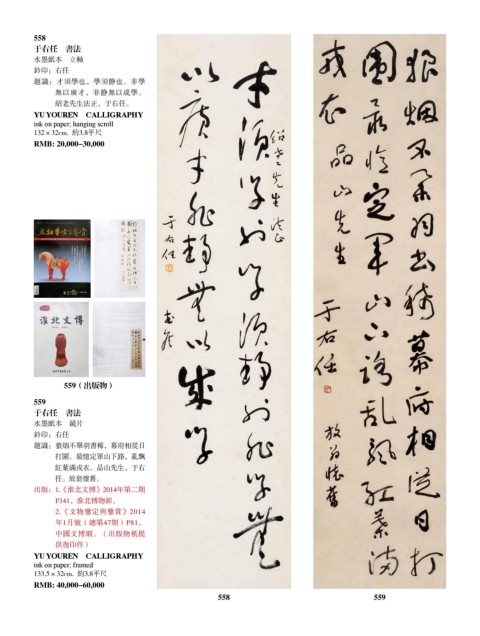 558
于右任　書法
水墨紙本　立軸
鈐印：右任
題識：才須學也，學須静也。非學
無以廣才，非静無以成學。
紹老先生法正，于右任。
YU YOUREN　CALLIGRAPHY
ink on paper; hanging scroll
132 × 32cm.  約3.8平尺
RMB: 20,000–30,000
淮北文博
559（出版物）
559
于右任　書法
水墨紙本　鏡片
鈐印：右任
題識：狼烟不舉羽書稀，幕府相從日
打圍。最憶定軍山下路，亂飄
紅葉滿戎衣。品山先生，于右
任。放翁懷舊。
出版：1.《淮北文博》2014年第二期
P141，淮北博物館。
2.《文物鑒定與鑒賞》2014
年1月號（總第47期）P81，
中國文博網。（出版物衹提
供復印件）
YU YOUREN　CALLIGRAPHY
ink on paper; framed
133.5 × 32cm.  約3.8平尺
RMB: 40,000–60,000
紹老先生法正
才須學也學須静也非學無
以廣才非静無以成學
于右任
558
狼烟不舉羽書稀幕府相從日打
圍最憶定軍山下路亂飄紅葉滿
戎衣
品山先生
于右任
放翁懷舊
559